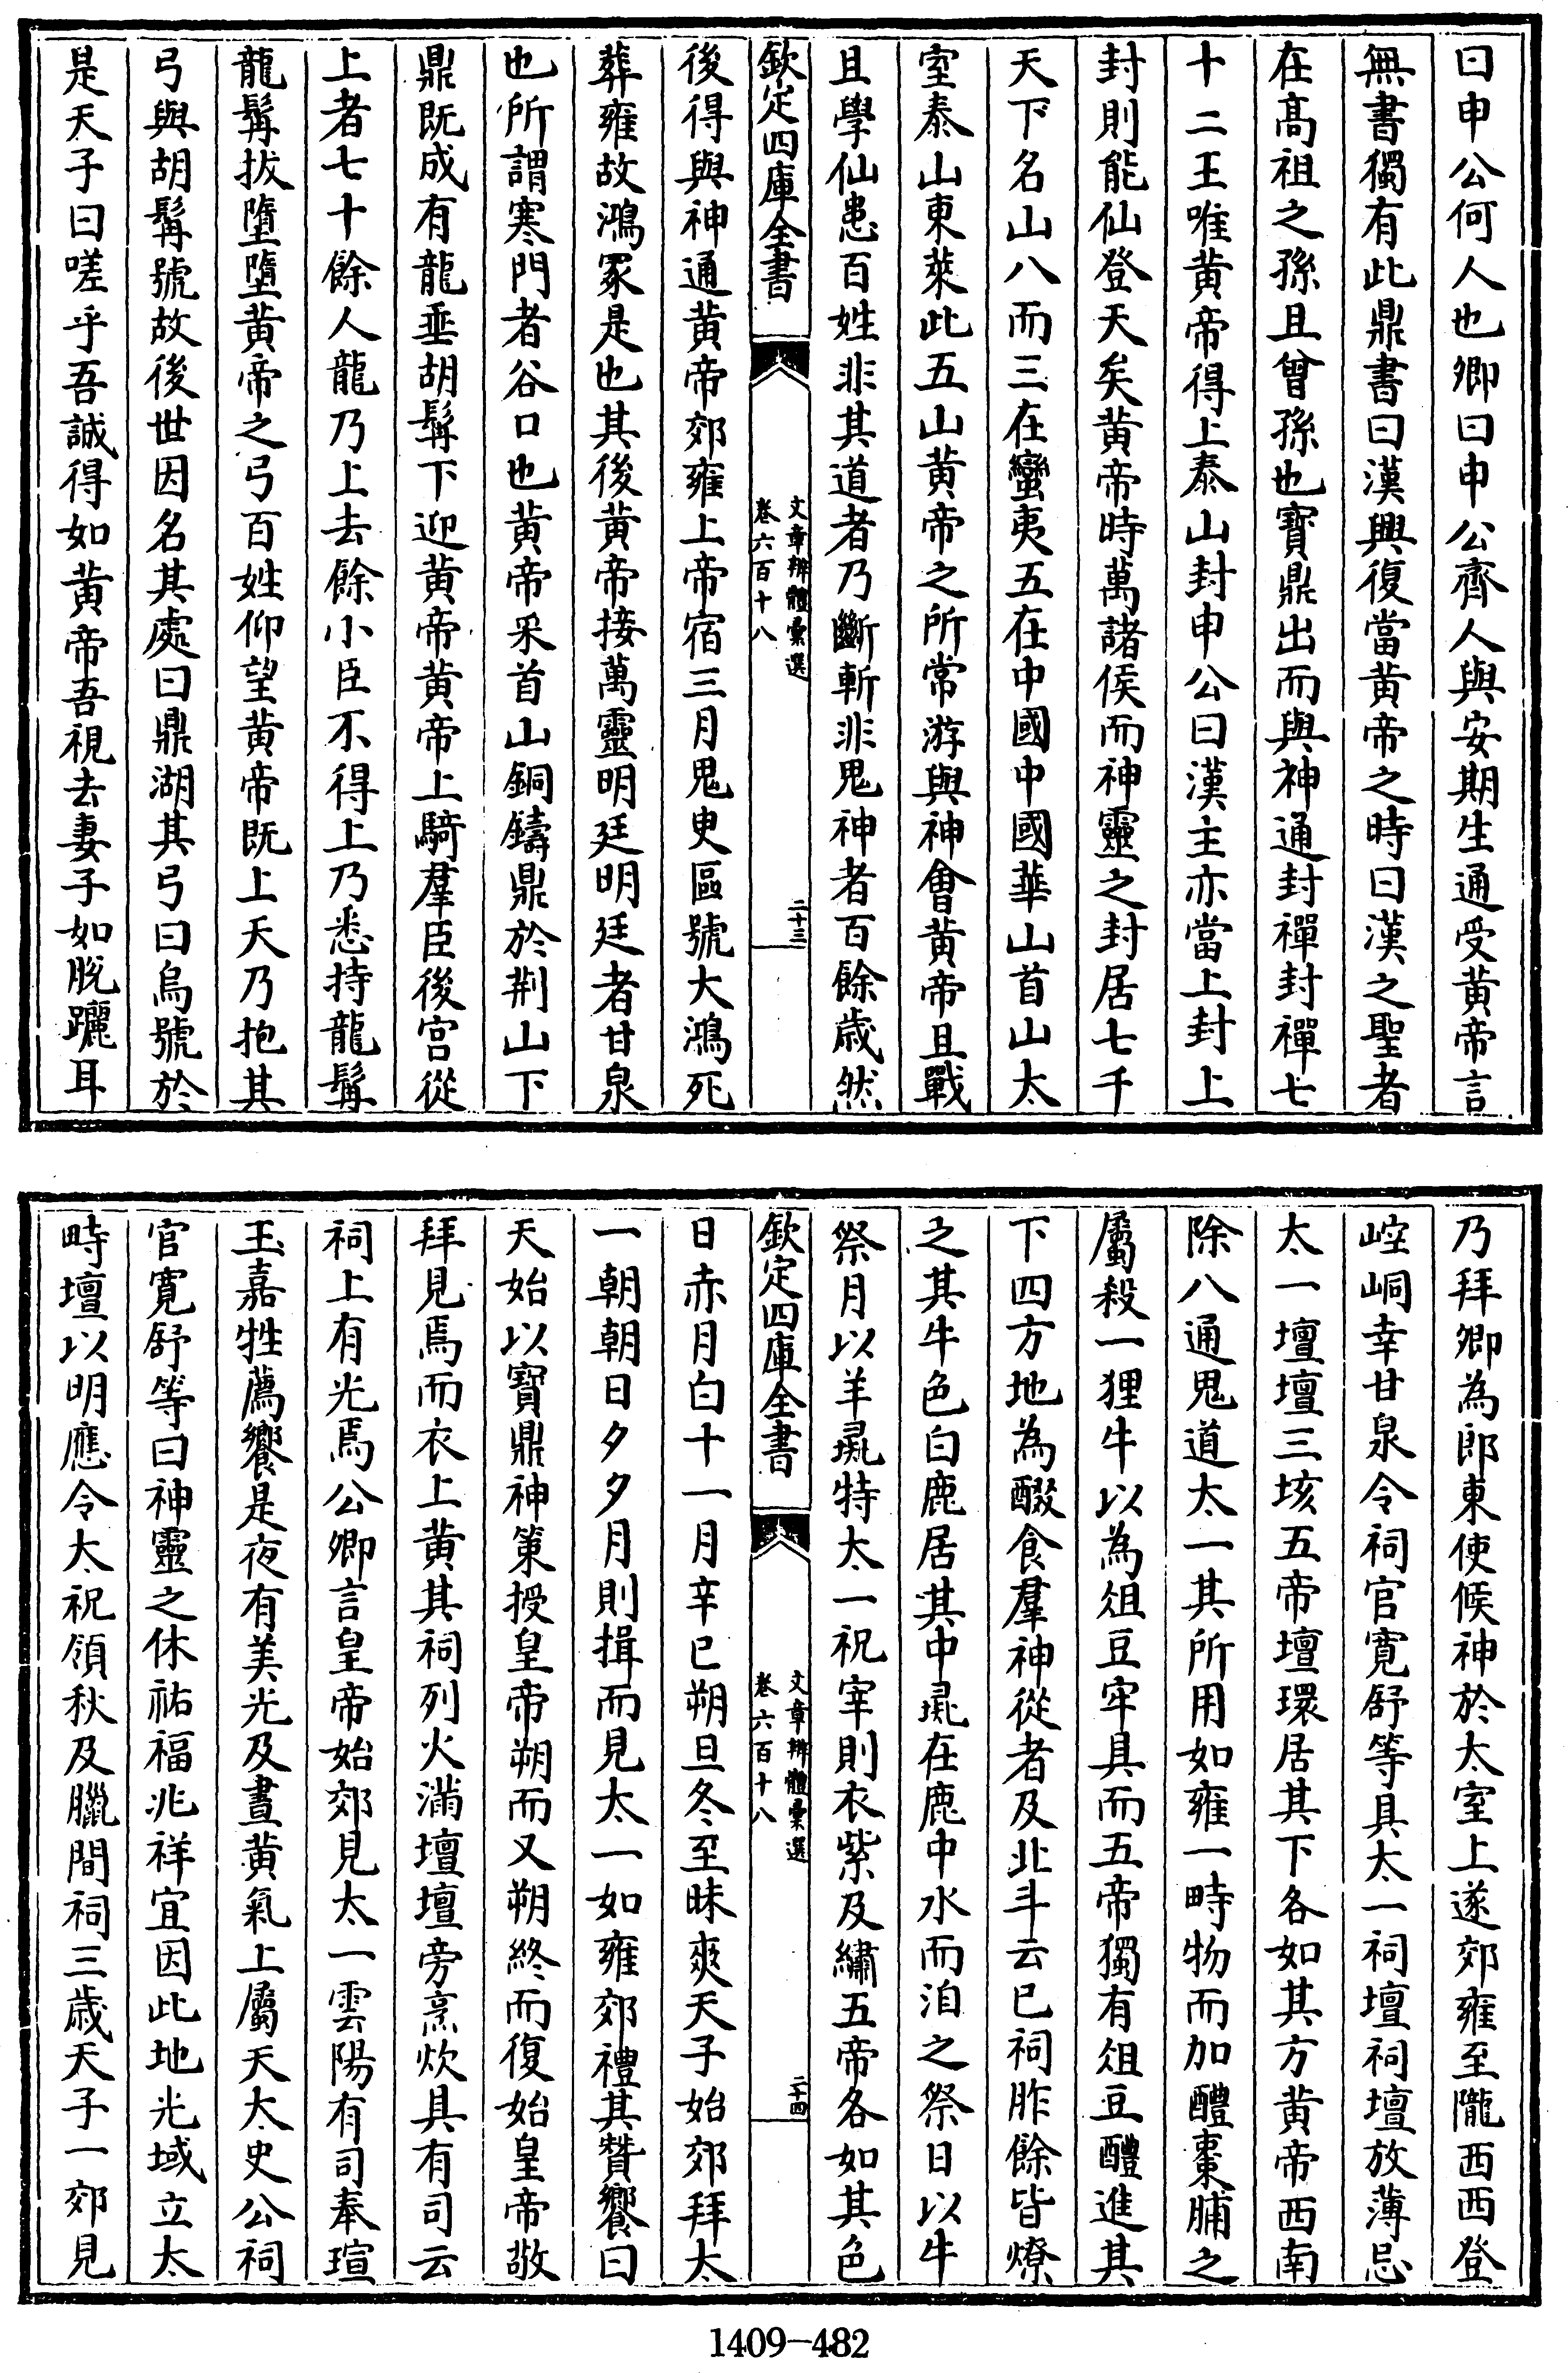 曰申公何人也卿曰申公齊人與安期生通受黃帝言
無書獨有此鼎書曰漢興復當黃帝之時曰漢之聖者
在高祖之孫且曾孫也寶鼎出而與神通封禪封禪七
十二王唯黃帝得上泰山封申公曰漢主亦當上封上
封則能仙登天矣黃帝時萬諸侯而神靈之封居七千
天下名山八而三在蠻夷五在中國中國華山首山太
室泰山東萊此五山黃帝之所常游與神會黃帝且戰
且學仙患百姓非其道者乃斷斬非鬼神者百餘歲然
欽定四庫全書
文章辨體彙選
卷六百十八
二十三
後得與神通黃帝郊雍上帝宿三月鬼臾區號大鴻死
葬雍故鴻冢是也其後黃帝接萬靈明廷明廷者甘泉
也所謂寒門者谷口也黃帝采首山銅鑄鼎於荆山下
鼎既成有龍垂胡髯下迎黃帝黃帝上騎羣臣後宮從
上者七十餘人龍乃上去餘小臣不得上乃悉持龍髯
龍髯拔墮墮黃帝之弓百姓仰望黃帝既上天乃抱其
弓與胡髯號故後世因名其處曰鼎湖其弓曰烏號於
是天子曰嗟乎吾誠得如黃帝吾視去妻子如脫躧耳
乃拜卿為郎東使候神於太室上遂郊雍至隴西西登
崆峒幸甘泉令祠官寬舒等具太一祠壇祠壇放薄忌
太一壇壇三垓五帝壇環居其下各如其方黃帝西南
除八通鬼道太一其所用如雍一畤物而加醴棗脯之
屬殺一狸牛以為俎豆牢具而五帝獨有俎豆醴進其
下四方地為醊食羣神從者及北斗云已祠胙餘皆燎
之其牛色白鹿居其中彘在鹿中水而洎之祭日以牛
祭月以羊彘特太一祝宰則衣紫及繡五帝各如其色
欽定四庫全書
文章辨體彙選
卷六百十八
二十四
日赤月白十一月辛巳朔旦冬至昧爽天子始郊拜太
一朝朝日夕夕月則揖而見太一如雍郊禮其贊饗曰
天始以寶鼎神策授皇帝朔而又朔終而復始皇帝敬
拜見焉而衣上黃其祠列火滿壇壇旁烹炊具有司云
祠上有光焉公卿言皇帝始郊見太一雲陽有司奉瑄
玉嘉牲薦饗是夜有美光及晝黃氣上屬天太史公祠
官寬舒等曰神靈之休祐福兆祥宜因此地光域立太
畤壇以明應令太祝領秋及臘間祠三歲天子一郊見
1409-482